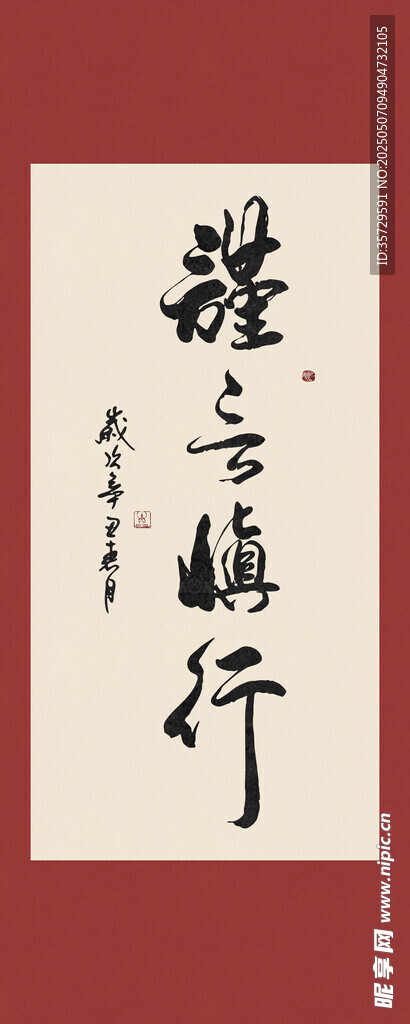 謹言慎行
歲次辛丑春月
ID:35729591 NO:20250507094904732105
昵享网 www.nipic.cn